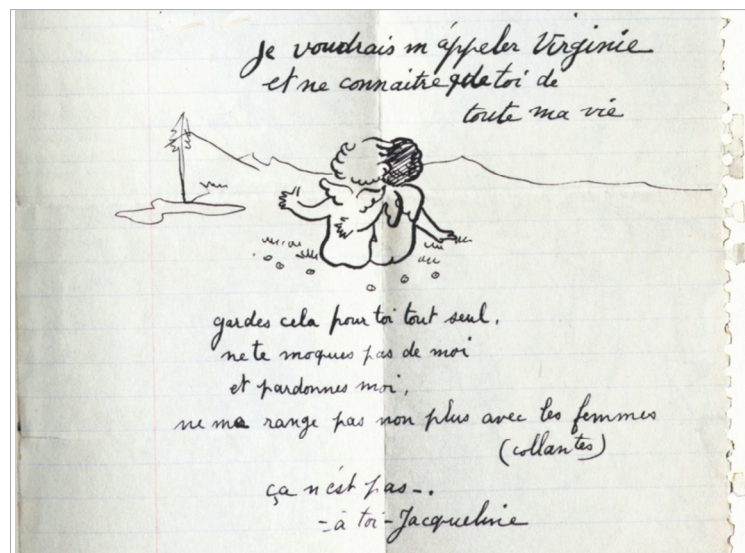 Je voudrais m'appeler Virginie
et ne connaitre que toi de
toute ma vie
gardes cela pour toi tout seul.
ne te moques pas de moi
et pardonnes moi,
ne me range pas non plus avec les femmes
(collantes)
ça n'est pas -.
- à toi - Jacqueline